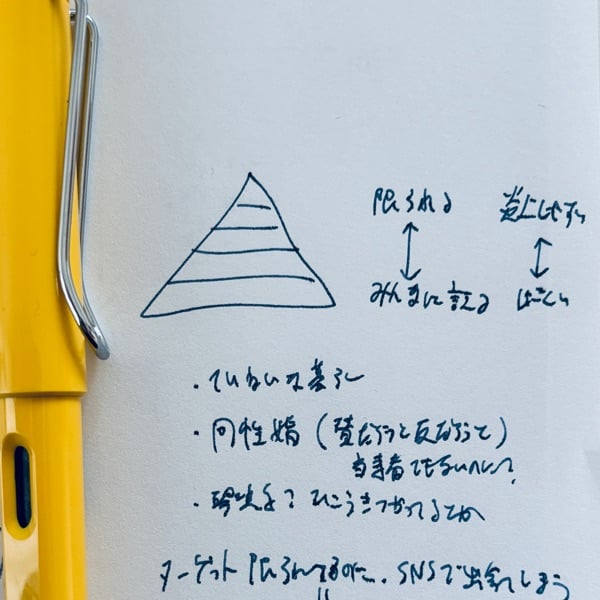 限られる 炎上しやすい
みんなに言える
・ていねいな暮らし
・同性婚（賛だろうと反だろうと）
当事者でもないのに？
・ ？ ひこうきつかってるとか
ターゲット限られてるのに、SNSで出会えてしまう